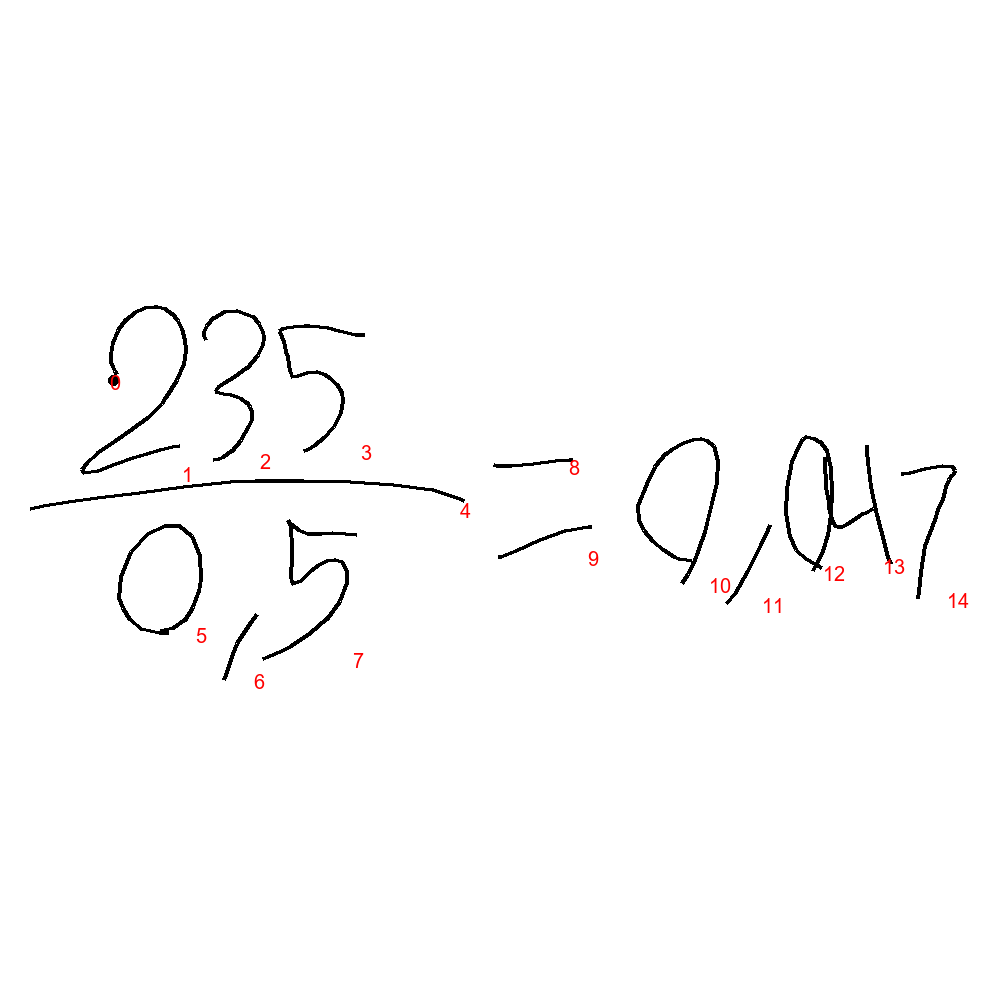 235
0,5
= 0,047
0
1
2
3
4
5
6
7
8
9
10
11
12
13
14